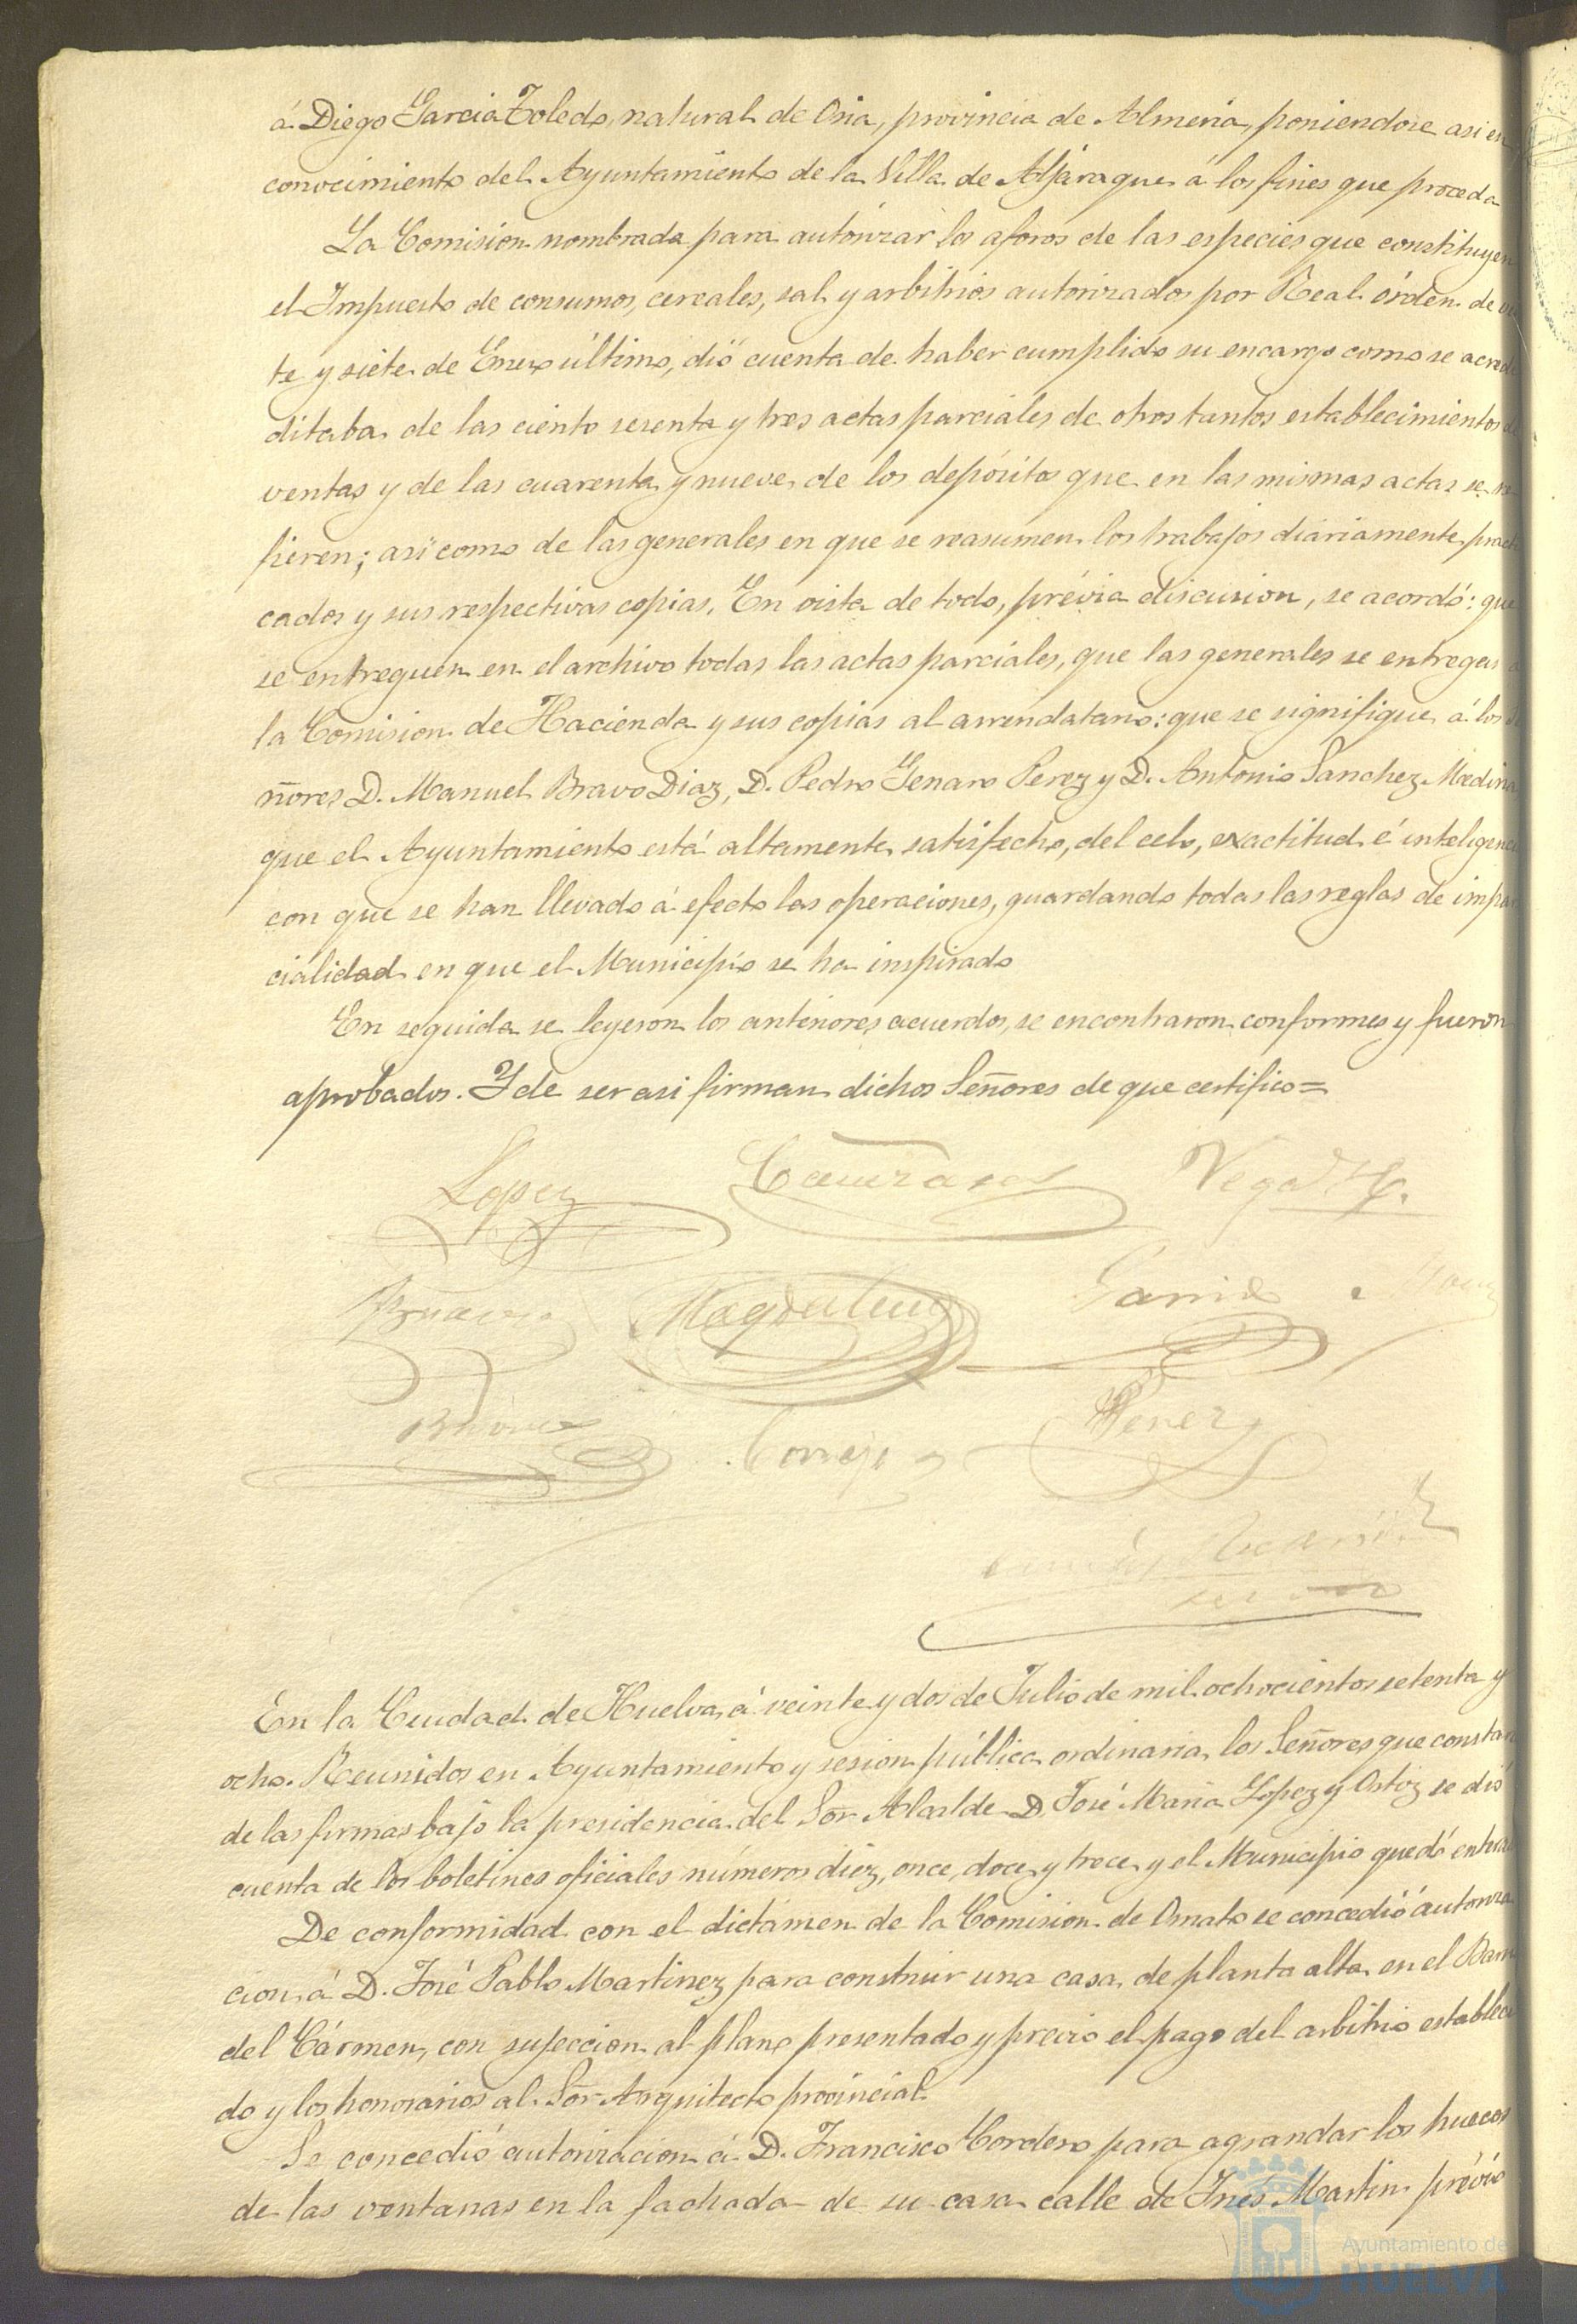 á Diego Garcia Toledo, natural de Oria, provincia de Almeria, poniendose asi en
conocimiento del Ayuntamiento de la Villa de Aljaraque á los fines que proceda
La Comision nombrada para autorizar los aforos de las especies que constituyen
el Impuesto de consumos, cereales, sal y arbitrios autorizados por Real órden de
te y siete de Enero último, dió cuenta de haber cumplido su encargo como se acre
ditaba de las ciento sesenta y tres actas parciales de otros tantos establecimientos de
ventas y de las cuarenta y nueve de los depósitos que en las mismas actas se re
fieren; asi como de las generales en que se reasumen los trabajos diariamente practi
cados y sus respectivas copias. En vista de todo, prévia discusion, se acordó: que
se entreguen en el archivo todas las actas parciales, que las generales se entreguen á
la Comision de Hacienda y sus copias al arrendatario: que se signifique á los Se
ñores D. Manuel Bravo Diaz, D. Pedro Genaro Perez y D. Antonio Sanchez Medina
que el Ayuntamiento está altamente satisfecho, del celo, exactitud é inteligenci
con que se han llevado á efecto las operaciones, guardando todas las reglas de impar
cialidad en que el Municipio se ha inspirado
En seguida se leyeron los anteriores acuerdos, se encontraron conformes y fueron
aprobados. Y de ser asi firman dichos Señores de que certifico=
Lopez Vega
Magdalena Garrido
Cornejo Perez
En la Ciudad de Huelva, á veinte y dos de Julio de mil ochocientos setenta y
ocho. Reunidos en Ayuntamiento y sesion pública ordinaria, los Señores que constan
de las firmas bajo la presidencia del Sor Alcalde D. José Maria Lopez y Ortiz se dió
cuenta de los boletines oficiales números diez, once, doce y trece y el Municipio quedó entera
De conformidad con el dictámen de la Comision de Ornato se concedió autoriza
cion á D. José Pablo Martinez para construir una casa de planta alta en el Barrio
del Cármen, con sujeccion al plano presentado y prévio el pago del arbitrio estableci
do y los honorarios al Sor Arquitecto provincial.
Se concedió autorizacion á D. Francisco Cordero para agrandar los huecos
de las ventanas en la fachada de su casa calle de Inés Martin prévio
Ayuntamiento de
HUELVA